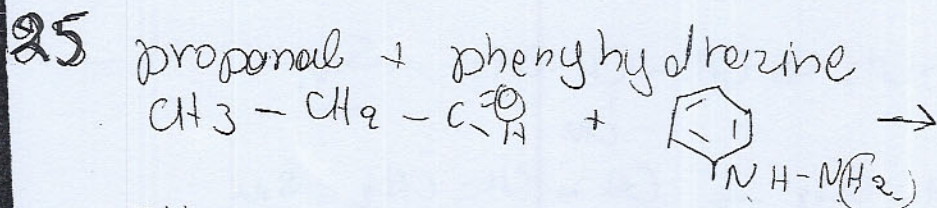 25 propanal + phenyhydrazine
CH3 - CH2 - C=O H + NH-NH2 →